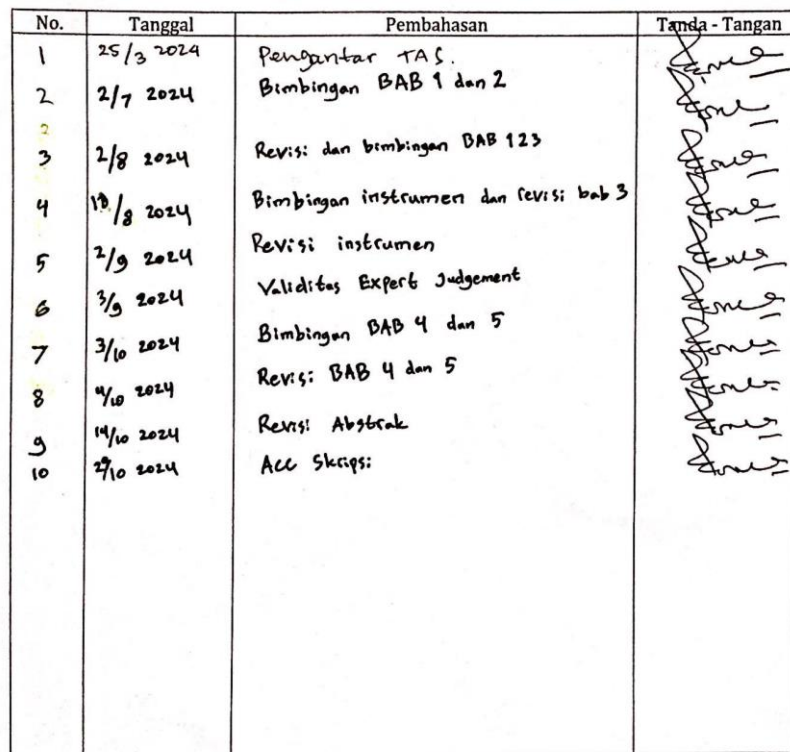 No. Tanggal Pembahasan Tanda - Tangan
1 25/3 2024 Pengantar TAS.
2 2/7 2024 Bimbingan BAB 1 dan 2
2
3 2/8 2024 Revisi dan bimbingan BAB 123
4 /8 2024 Bimbingan instrumen dan revisi bab 3
5 2/9 2024 Revisi instrumen
6 3/9 2024 Validitas Expert Judgement
7 3/10 2024 Bimbingan BAB 4 dan 5
8 4/10 2024 Revisi BAB 4 dan 5
9 14/10 2024 Revisi Abstrak
10 /10 2024 Acc Skripsi